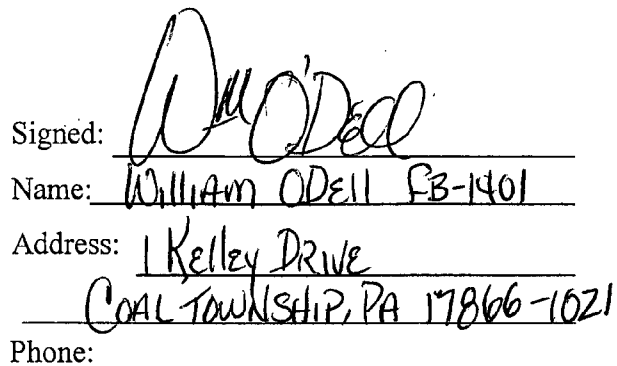 Signed: Wm O'Dell
Name: William ODell FB-1401
Address: 1 Kelley Drive
Coal Township, PA 17866-1021
Phone: